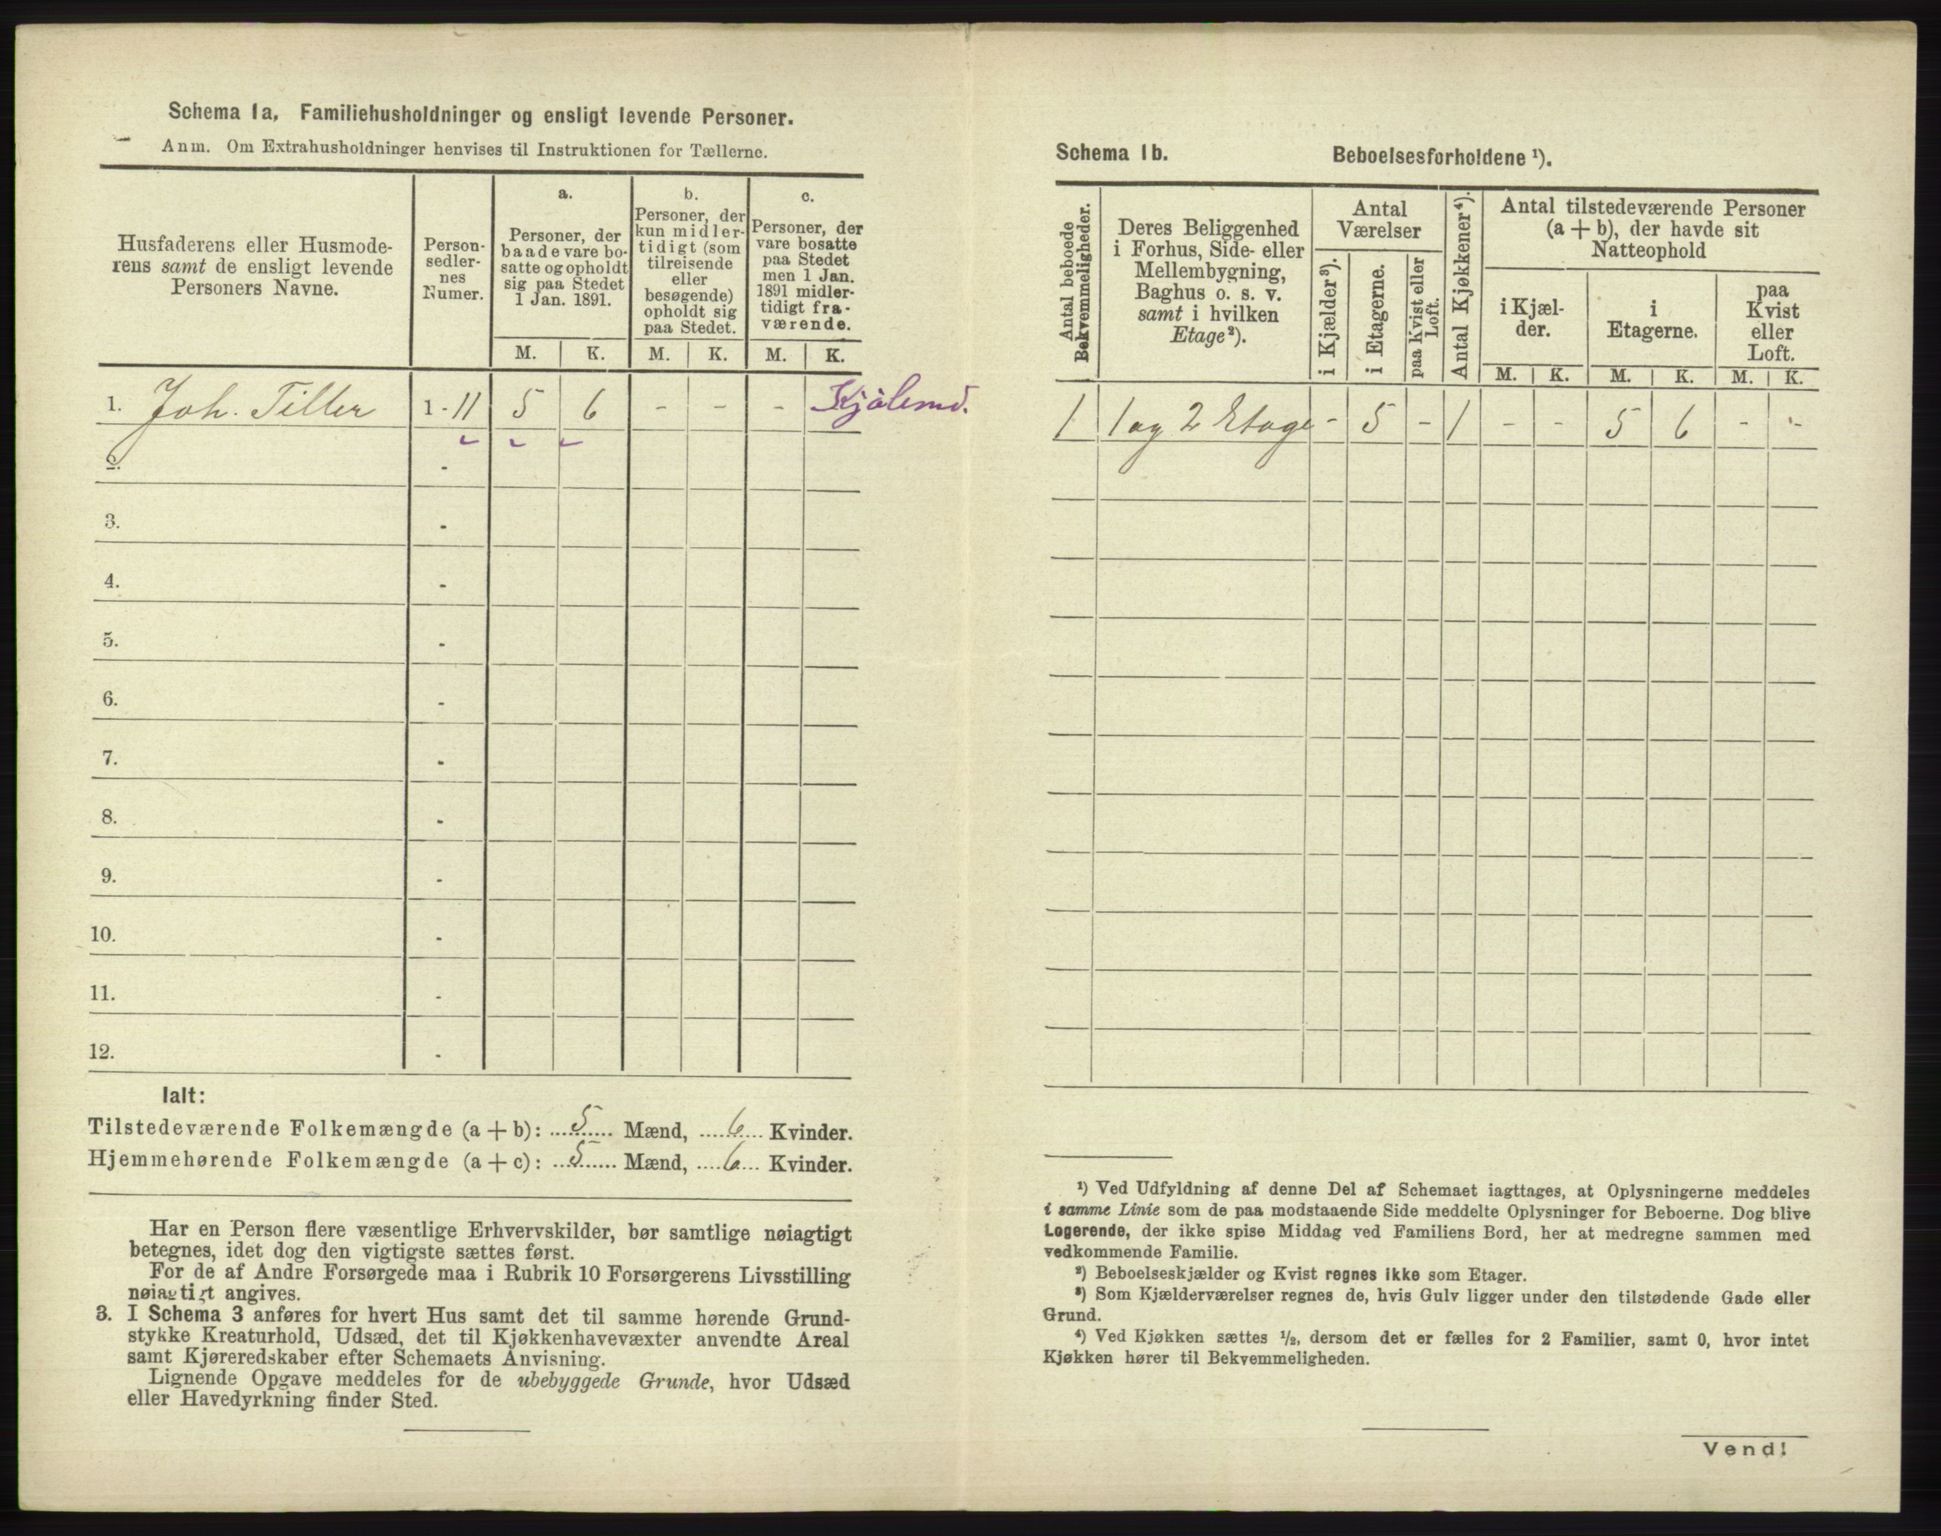 Schema 1a. Familiehusholdninger og ensligt levende Personer.
Anm. Om Extrahusholdninger henvises til Instruktionen for Tællerne.
Husfaderens eller Husmode-
rens samt de ensligt levende
Personers Navne.
Person-
sedler-
nes
Numer.
a.
Personer, der
baade vare bo-
satte og opholdt
sig paa Stedet
1 Jan. 1891.
b.
Personer, der
kun midler-
tidigt (som
tilreisende
eller
besøgende)
opholdt sig
paa Stedet.
c.
Personer, der
vare bosatte
paa Stedet
men 1 Jan.
1891 midler-
tidigt fra-
værende.
M. K. M. K. M. K.
1. Joh. Tiller 1 - 11 5 6 - - -
2. -
3. -
4. -
5. -
6. -
7. -
8. -
9. -
10. -
11. -
12. -
Ialt:
Tilstedeværende Folkemængde (a + b): 5 Mænd, 6 Kvinder.
Hjemmehørende Folkemængde (a + c): 5 Mænd, 6 Kvinder.
Har en Person flere væsentlige Erhvervskilder, bør samtlige nøiagtigt
betegnes, idet dog den vigtigste sættes først.
For de af Andre Forsørgede maa i Rubrik 10 Forsørgerens Livsstilling
nøiagtigt angives.
3. I Schema 3 anføres for hvert Hus samt det til samme hørende Grund-
stykke Kreaturhold, Udsæd, det til Kjøkkenhavevæxter anvendte Areal
samt Kjøreredskaber efter Schemaets Anvisning.
Lignende Opgave meddeles for de ubebyggede Grunde, hvor Udsæd
eller Havedyrkning finder Sted.
Schema 1b. Beboelsesforholdene ¹).
Antal beboede
Bekvemmeligheder.
Deres Beliggenhed
i Forhus, Side- eller
Mellembygning,
Baghus o. s. v.
samt i hvilken
Etage ²).
Antal
Værelser
i Kjælder ³).
i Etagerne.
paa Kvist eller
Loft.
Antal Kjøkkener ⁴).
Antal tilstedeværende Personer
(a + b), der havde sit
Natteophold
i Kjæl-
der.
i
Etagerne.
paa
Kvist
eller
Loft.
M. K. M. K. M. K.
1 1 og 2 Etage - 5 - 1 - - 5 6 - -
¹) Ved Udfyldning af denne Del af Schemaet iagttages, at Oplysningerne meddeles
i samme Linie som de paa modstaaende Side meddelte Oplysninger for Beboerne. Dog blive
Logerende, der ikke spise Middag ved Familiens Bord, her at medregne sammen med
vedkommende Familie.
²) Beboelseskjælder og Kvist regnes ikke som Etager.
³) Som Kjælderværelser regnes de, hvis Gulv ligger under den tilstødende Gade eller
Grund.
⁴) Ved Kjøkken sættes ½, dersom det er fælles for 2 Familier, samt 0, hvor intet
Kjøkken hører til Bekvemmeligheden.
Vend!